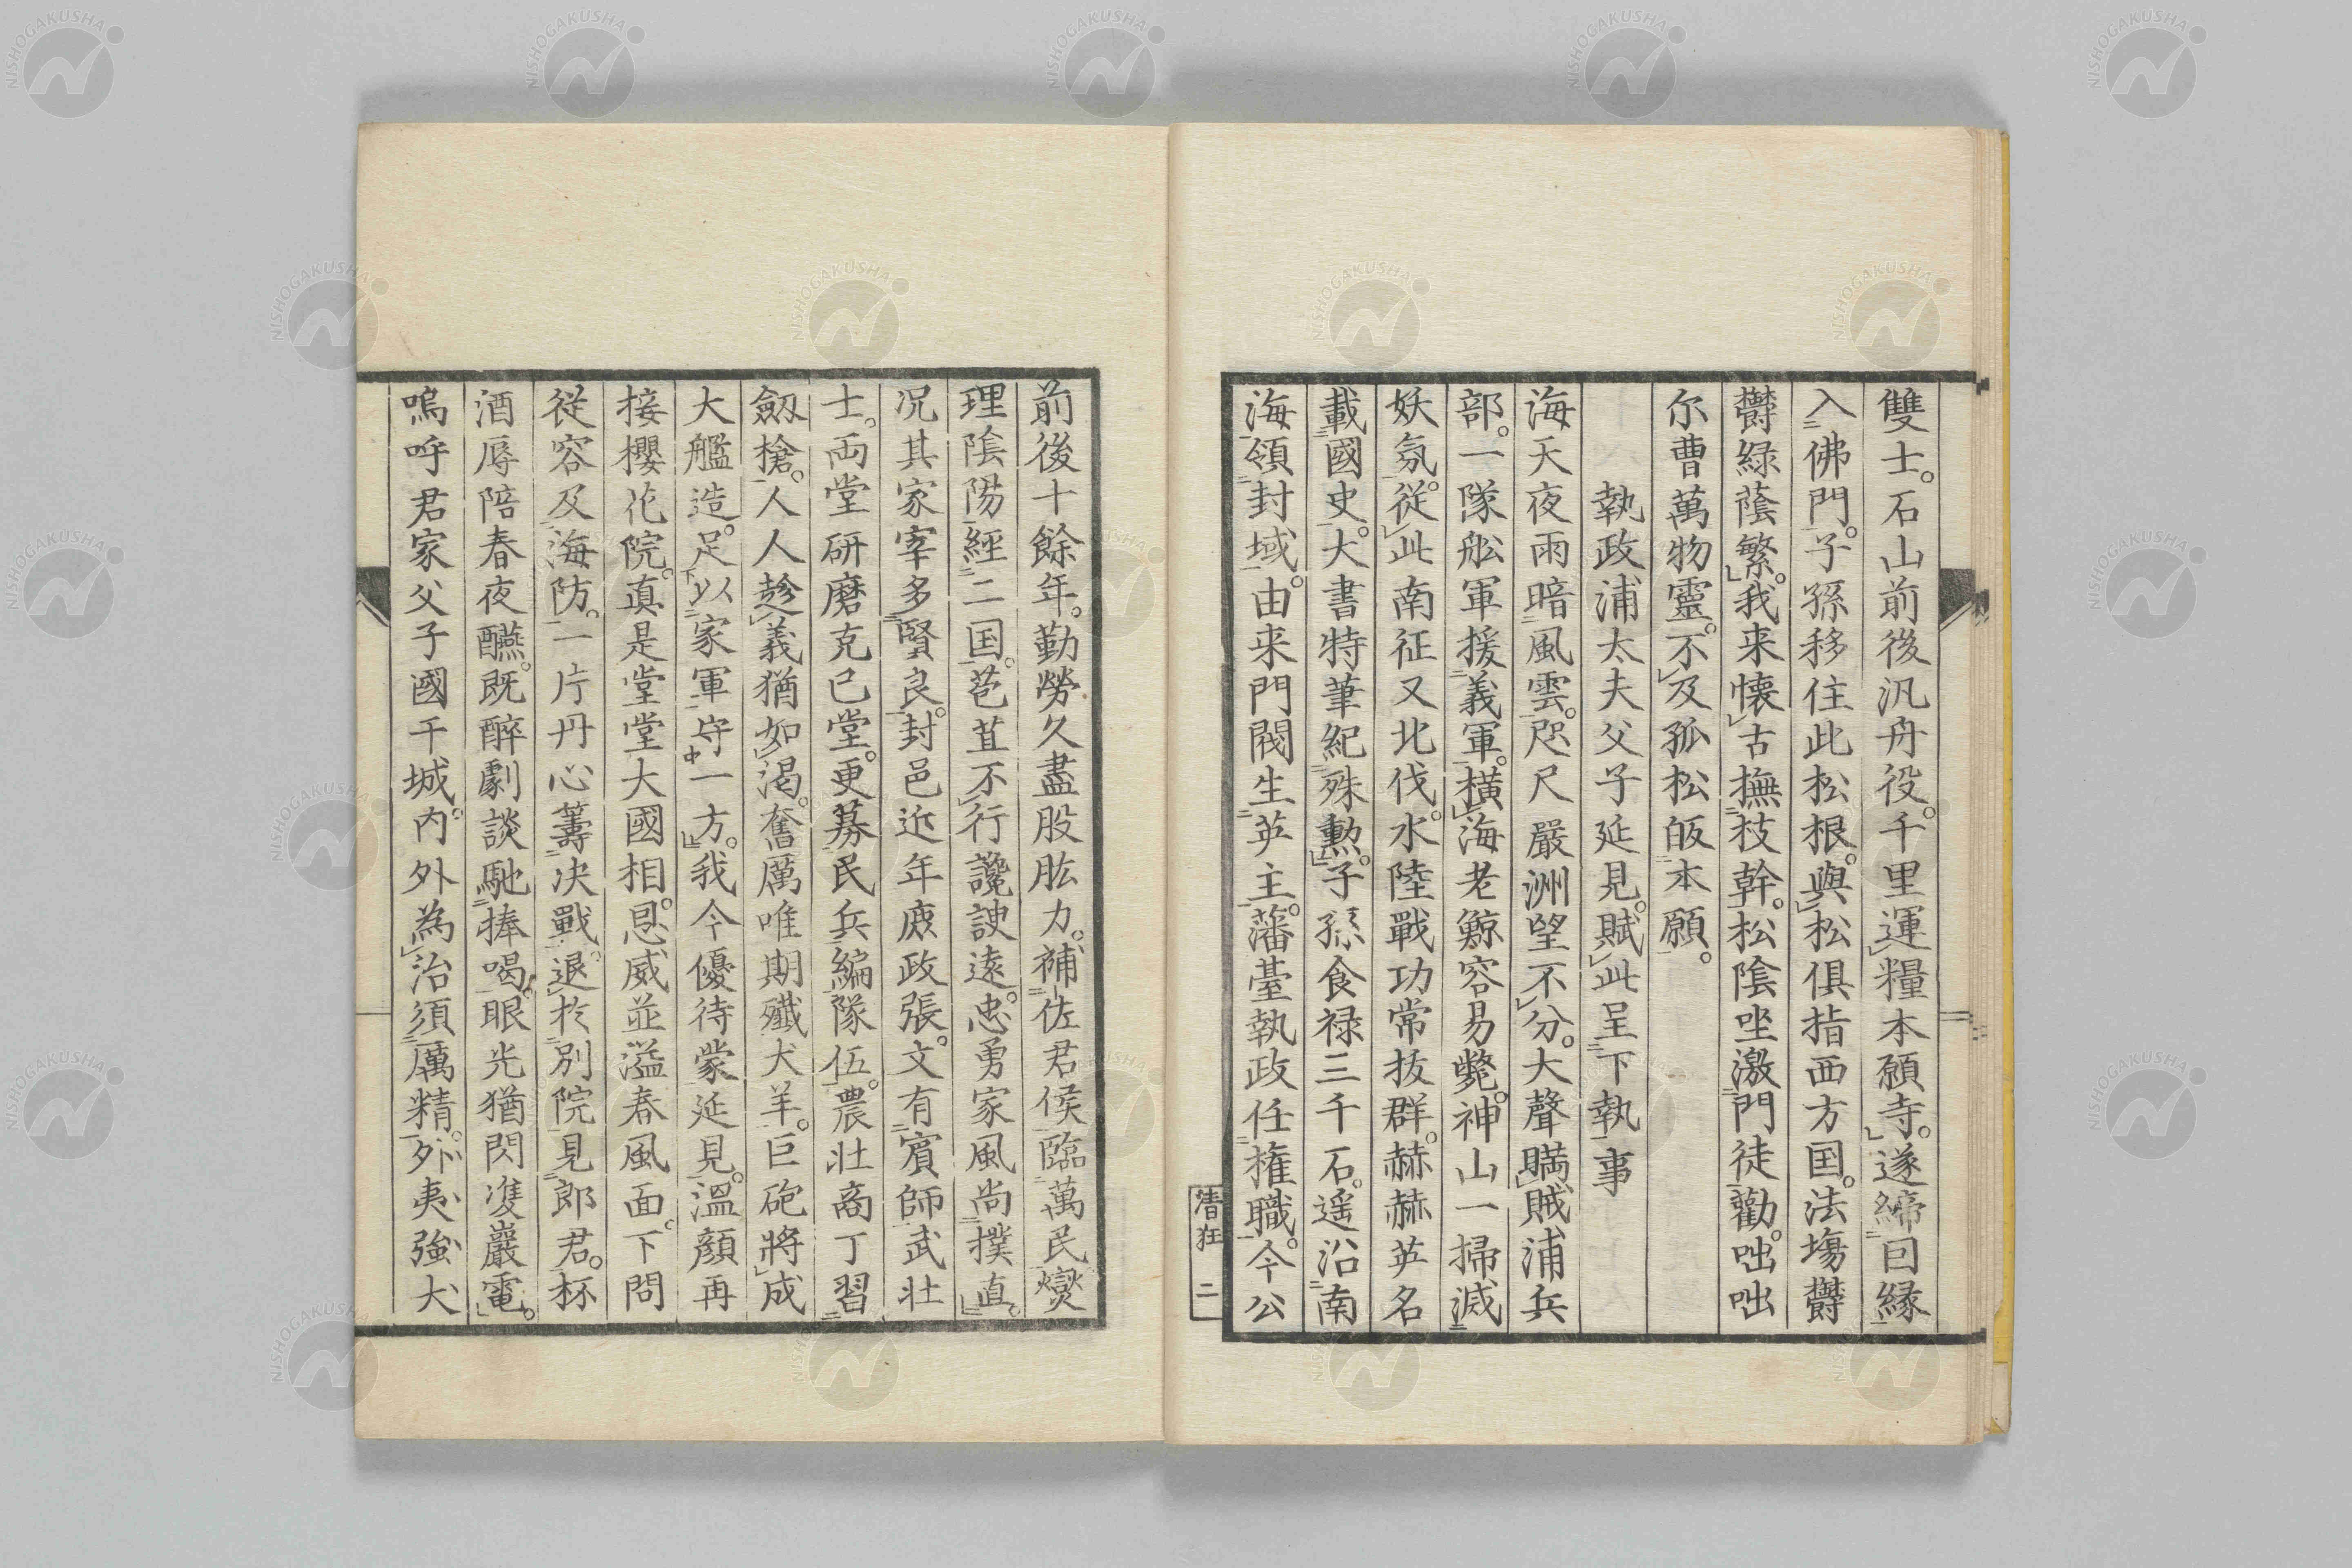 雙士。石山前後汎舟役。千里運糧本願寺。遂締回緣
入佛門。子孫移住此松根。與松俱指西方国。法場欝
欝綠蔭繁。我来懐古撫枝幹。松陰坐激門徒勸。咄咄
尓曹萬物靈。不及孤松皈本願。
執政浦太夫父子延見。賦此呈下執事
海天夜雨暗風雲。咫尺嚴洲望不分。大聲瞞賊浦兵
部。一隊舩軍援義軍。橫海老鯨容易斃。神山一掃滅
妖氛。從此南征又北伐。水陸戰功常拔群。赫赫英名
載國史。大書特筆紀殊勲。子孫食禄三千石。遥沿南
海領封域。由来門閥生英主。藩臺執政任権職。今公
潜狂 二
前後十餘年。勤勞久盡股肱力。補佐君侯臨萬民。燮
理陰陽經二国。苞苴不行讒諛遠。忠勇家風尚撲直。
况其家宰多賢良。封邑近年庶政張。文有賓師武壮
士。両堂研磨克己堂。更募民兵編隊伍。農壮商丁習
劔槍。人人趁義猶如渇。奮厲唯期殲犬羊。巨砲將成
大艦造。足以家軍守一方。我今優待蒙延見。溫顔再
接櫻花院。真是堂堂大國相。恩威並溢春風面。下問
從容及海防。一片丹心籌决戰。退於別院見郎君。杯
酒辱陪春夜醼。既醉劇談馳捧喝。眼光猶閃凄巖電。
嗚呼君家父子國干城。内外為治須厲精。外夷強犬
NISHOGAKUSHA